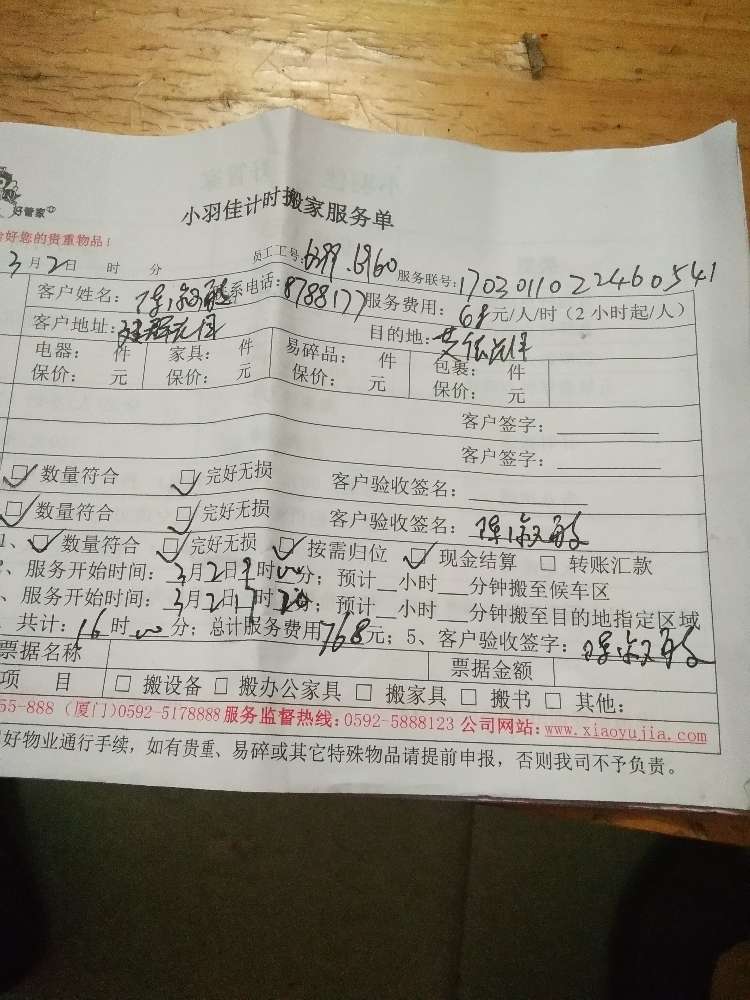 好管家
小羽佳计时搬家服务单
好您的贵重物品！
3月2日 时 分 员工工号: 服务联号:17030110224605 41
客户姓名: 系电话:8788177 服务费用: 68元/人/时(2小时起/人)
客户地址: 目的地:
电器: 件 家具: 件 易碎品: 件 包裹: 件
保价: 元 保价: 元 保价: 元 保价: 元
客户签字:
客户签字:
☑ 数量符合 ☑ 完好无损 客户验收签名:
☑ 数量符合 ☑ 完好无损 客户验收签名:
1、☑ 数量符合 ☑ 完好无损 ☑ 按需归位 ☑ 现金结算 □ 转账汇款
、服务开始时间: 3月2日 时 分; 预计__小时___分钟搬至候车区
、服务开始时间: 3月2日17时 分; 预计__小时___分钟搬至目的地指定区域
共计: 16时 分; 总计服务费用768元; 5、客户验收签字:
票据名称 票据金额
项 目 □ 搬设备 □ 搬办公家具 □ 搬家具 □ 搬书 □ 其他:
55-888 (厦门)0592-5178888 服务监督热线:0592-5888123 公司网站:www.xiaoyujia.com
好物业通行手续，如有贵重、易碎或其它特殊物品请提前申报，否则我司不予负责。